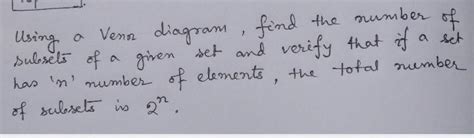 Using a Venn diagram, find the number of
subsets of a given set and verify that if a set
has 'n' number of elements, the total number
of subsets is 2ⁿ.